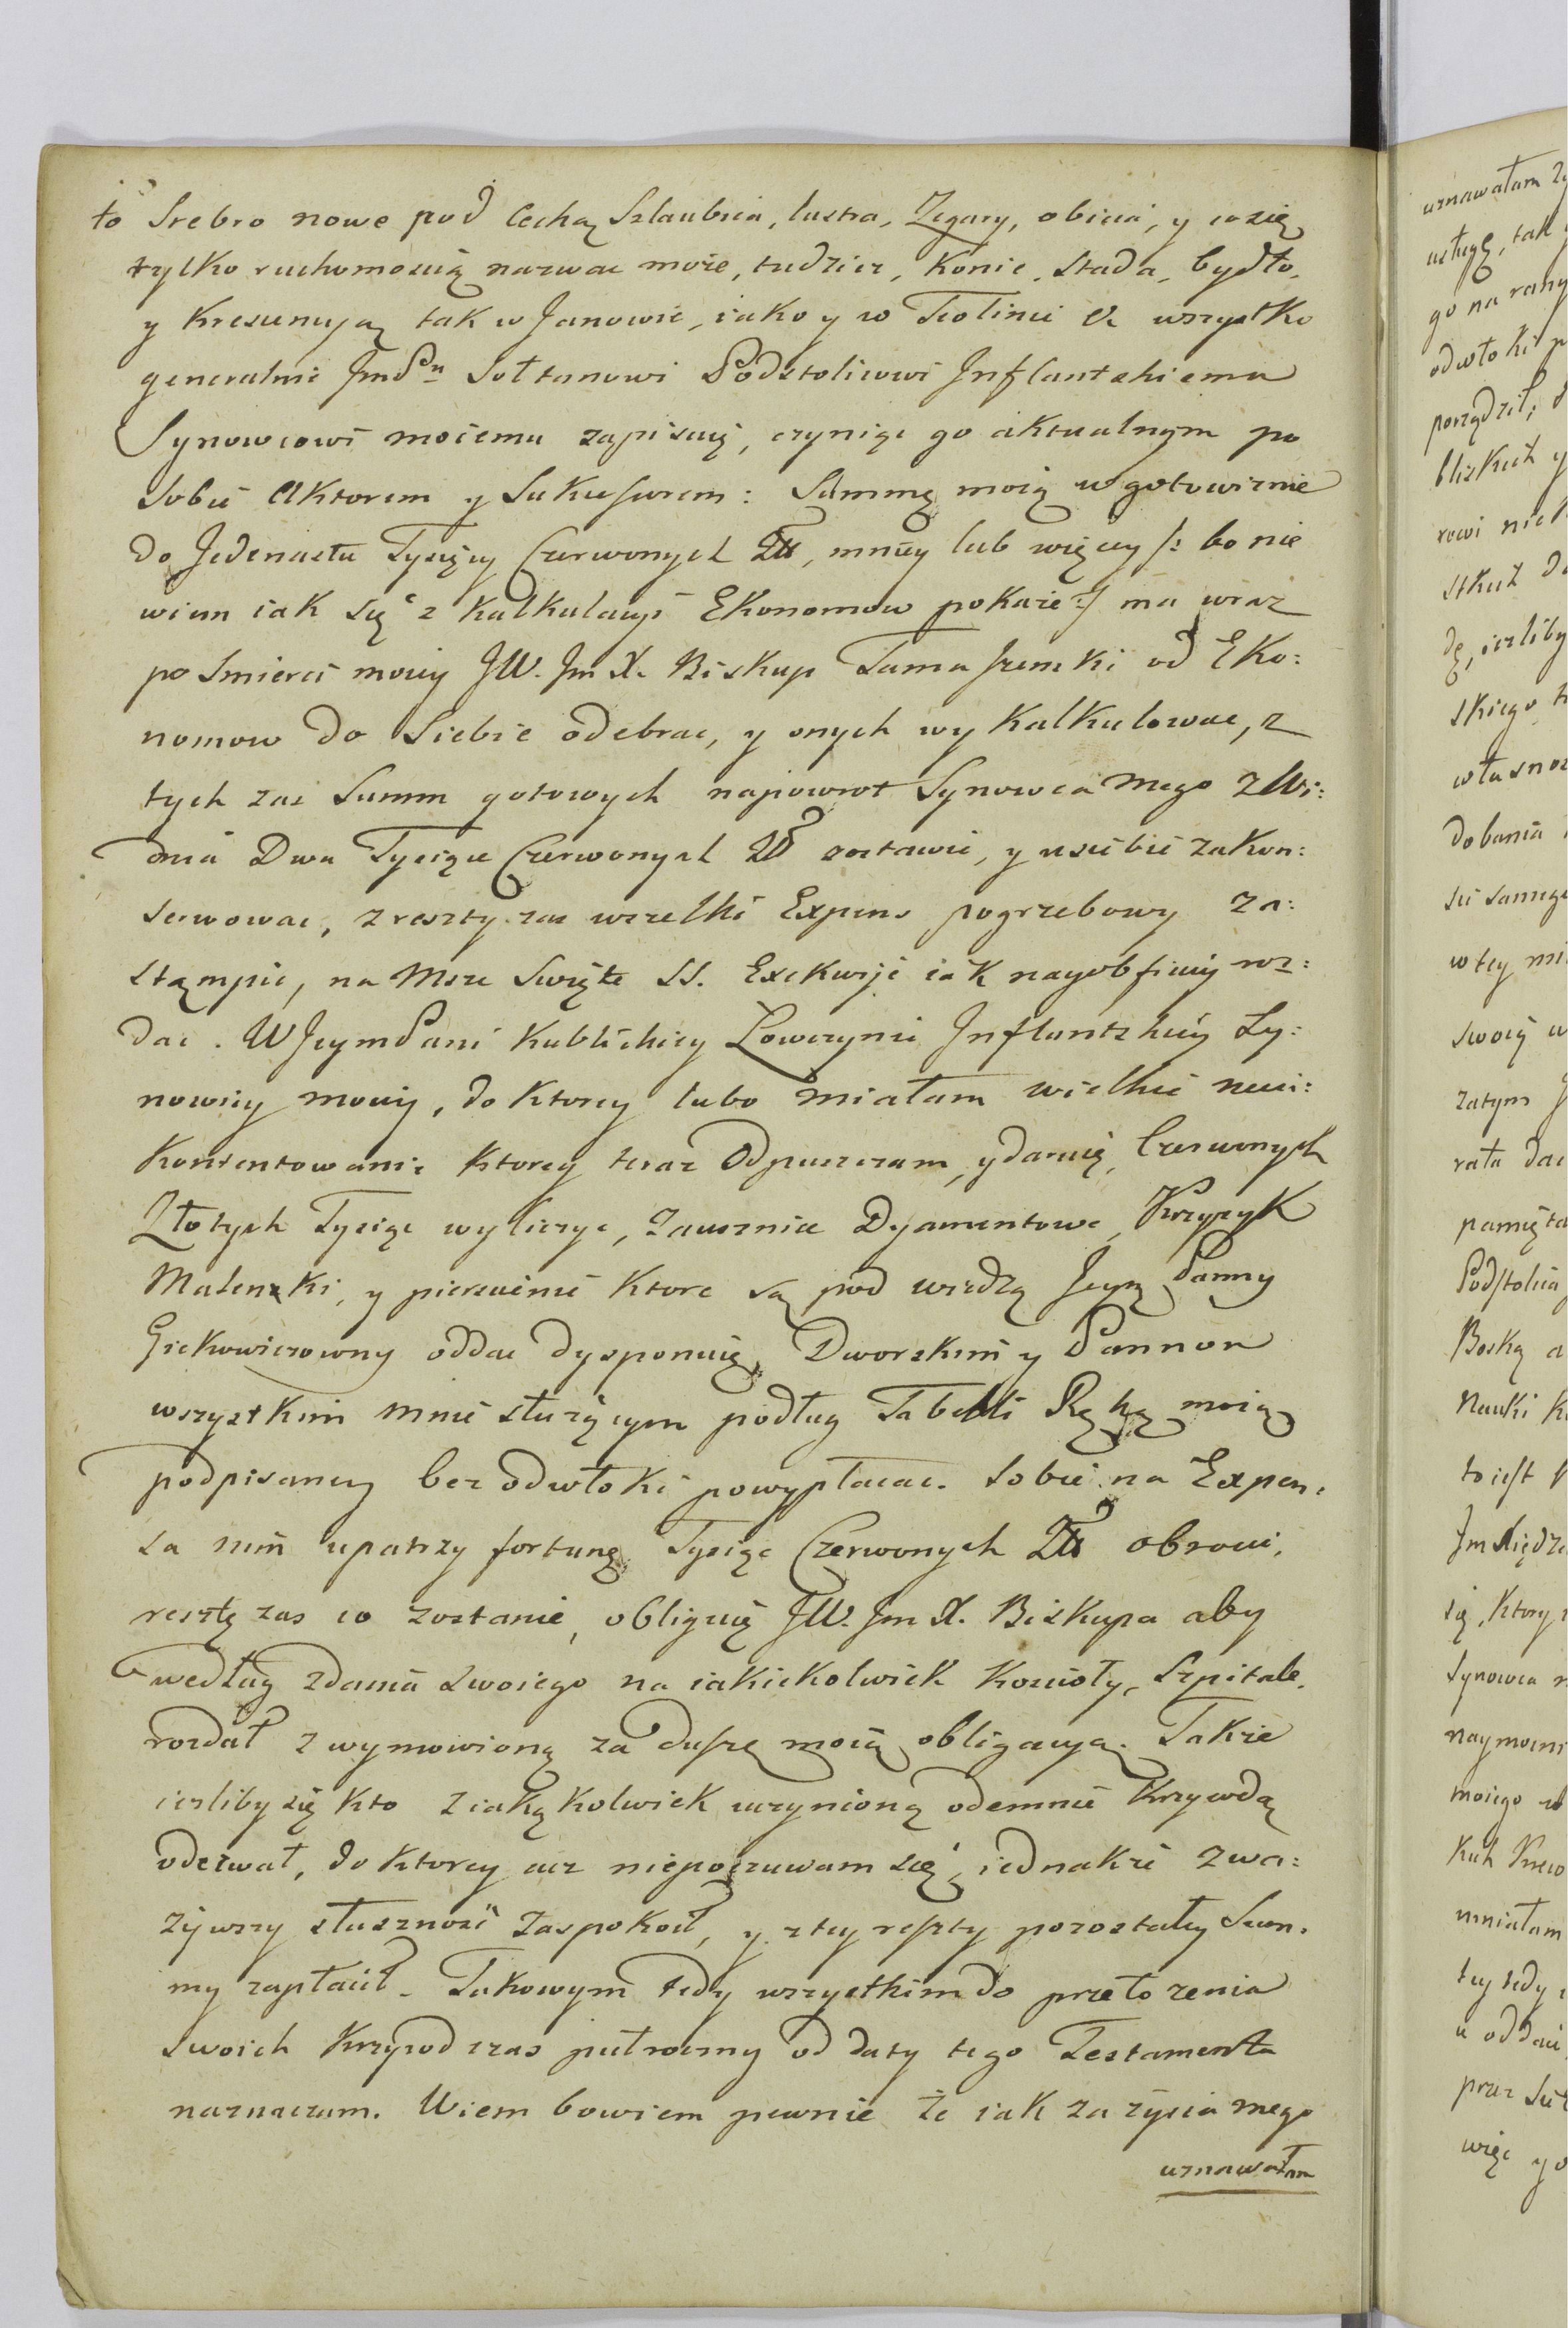 to Srebro nowe pod Cechą Szlaubica, lustra, Zegary, obicia, y co się
tylko ruchomoscią nazwac może, tudzież, Konie, Stada, bydło,
y Krescencyą tak w Janowie, iako y w Teolinie &c wszystko
generalnie JmPn Sołtanowi Podstolicowi Inflantskiemu
Synowcowi moiemu zapisuię, czyniąc go aktualnym po
Sobie Aktorem y Sukcessorem: Summę moią w gotowiznie
do Jedenastu Tysięcy Czerwonych Złł, mniey lub więcey /: bo nie
wiem iak się z Kalkulacyi Ekonomow pokaże :/ ma wraz
po Smierci moiey JW. Jm X. Biskup Tomaszewski od Eko:
nomow do Siebie odebrac, y onych wykalkulowac, z
tych zas Summ gotowych napowrot Synowca Mego z Wi:
dnia Dwa Tysiące Czerwonych Złł zostawic, y u siebie zakon:
serwowac, z reszty zas wszelki Expens pogrzebowy za:
stąmpic, na Msze Swięte SS. Exekwije iak nayobficiey roz:
dac. W JeymPani Kublickiey Łowczynie Inflantskiey Sy:
nowicy moiey, do Ktorey lubo miałam wielkie nieu:
kontentowanie Ktorey teraz Odpuszczam, y daruię, Czerwonych
Złotych Tysiąc wyliczyc, Zausznice Dyamentowe, Krzyzyk
Malenki, y pierscienie Ktore są pod wiedzą Jeyą Panny
Giekowiczowny oddac dysponuię, Dworskim y Pannom
wszystkim mnie służącym podług Tabelli Ręką moią
podpisaney bez odwłoki powypłacac. Sobie na Expen:
sa nim upatrzy fortunę Tysiąc Czerwonych Złł obroci,
resztę zas co zostanie, obliguię JW. Jm X. Biskupa aby
według zdania Swoiego na iakiekolwiek Koscioły, Szpitale,
rozdał z wymowioną za duszę moią obligacyą. Takze
iesliby się kto z iaką kolwiek uczynioną odemnie Krzywdą
odezwał, do Ktorey acz niepoczuwam się, iednakże zwa:
zywszy słusznosc Zaspokoił, y z tey reszty pozostałey Sum:
my zapłacił. Takowym tedy wszystkim do przełozenia
Swoich Krzywd czas pułroczny od daty tego Testamentu
naznaczam. Wiem bowiem pewnie że iak za życia mego
uznawałam